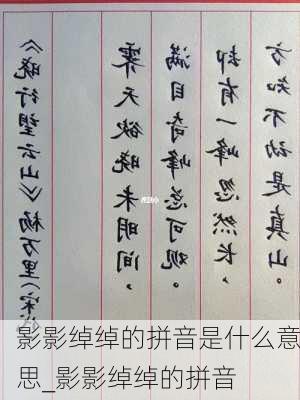 《晓行望云山》杨万里(宋)
霁天欲晓未明间,
满目奇峰总可观。
却有一峰忽然长,
方知不动是真山。
影影绰绰的拼音是什么意
思_影影绰绰的拼音